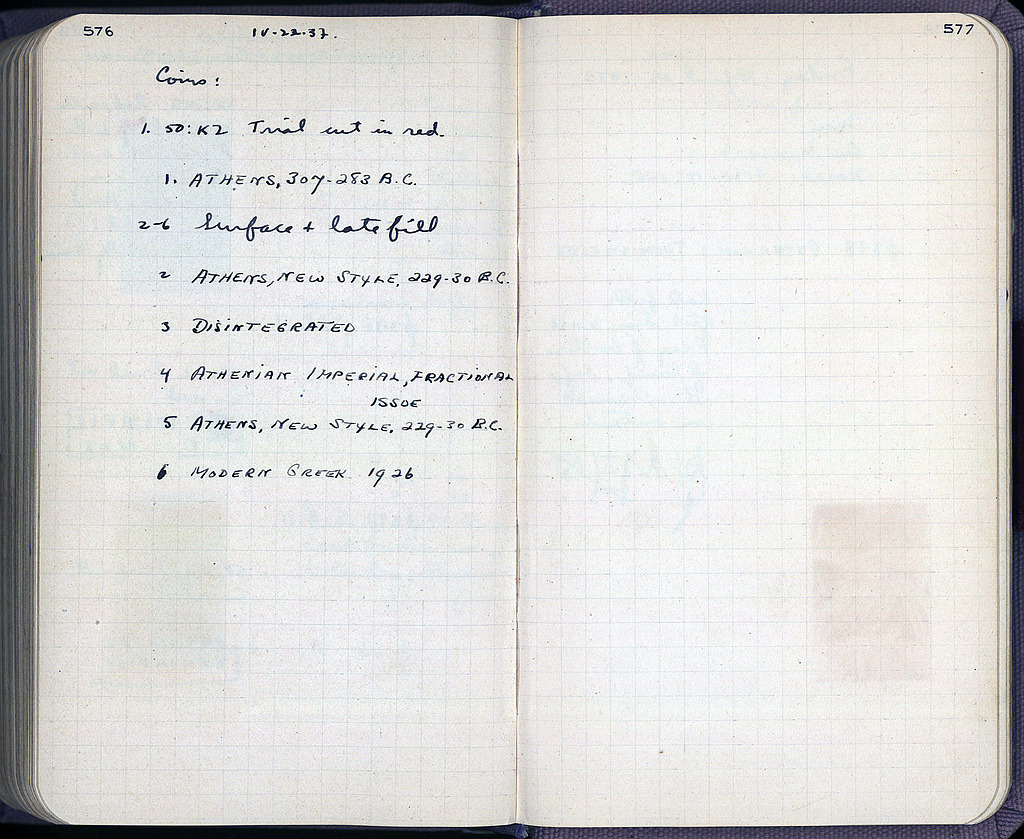 576
IV-22-37.
577
Coins:
1. 50:K2 Trial cut in red.
1. ATHENS, 307-283 B.C.
2-6 Surface + late fill
2 ATHENS, NEW STYLE, 229-30 B.C.
3 DISINTEGRATED
4 ATHENIAN IMPERIAL, FRACTIONAL
ISSUE
5 ATHENS, NEW STYLE, 229-30 B.C.
6 MODERN GREEK 1926